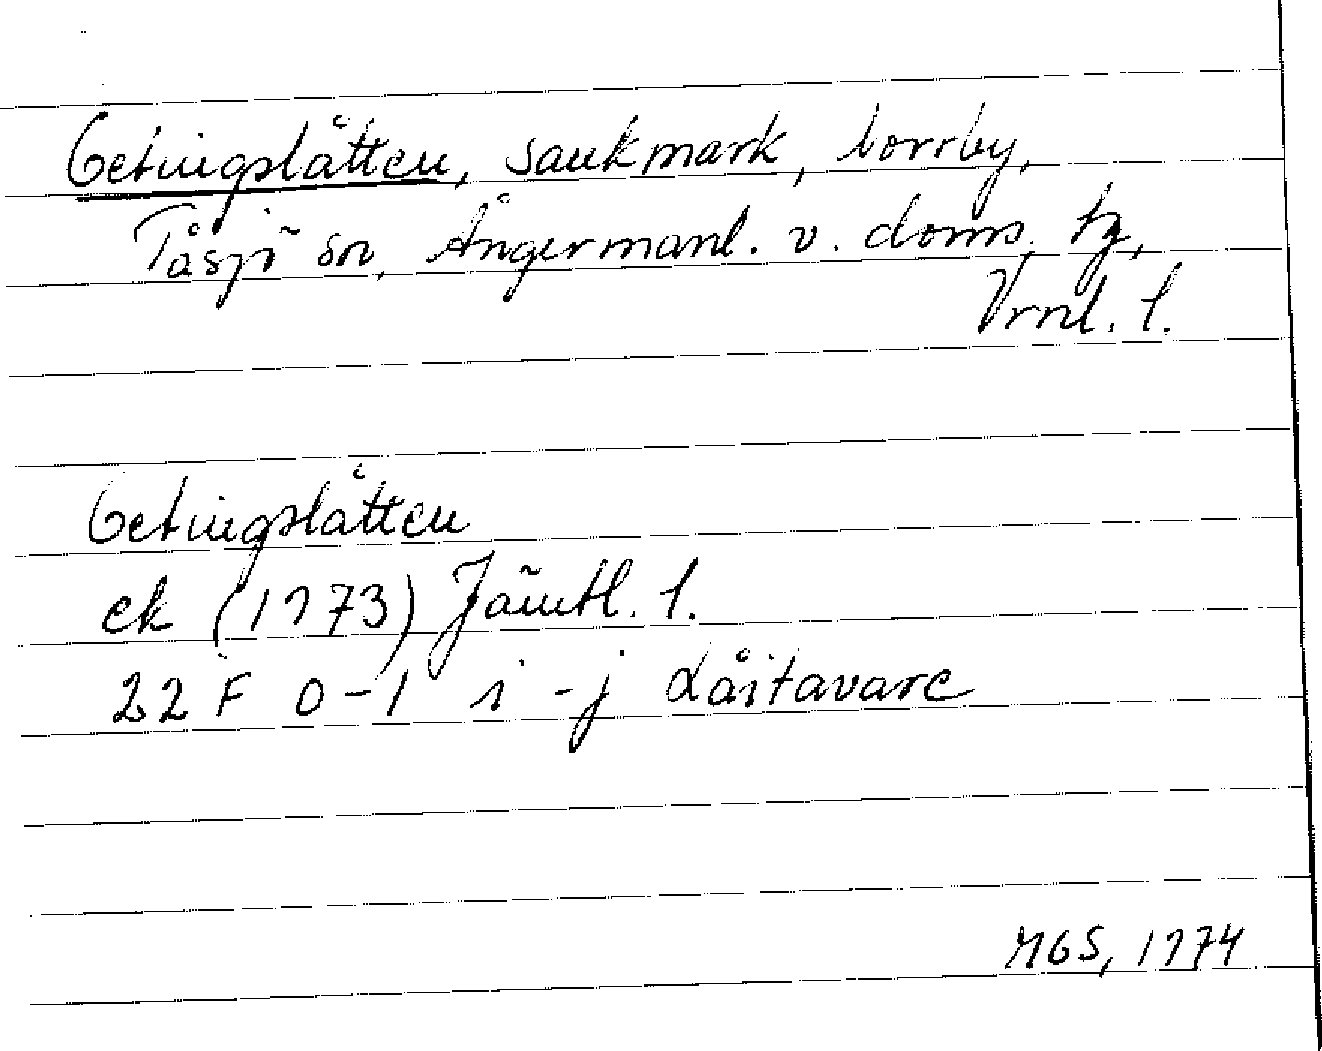 Getingslåtten, sankmark, Norrby,
Tåsjö sn, Ångermanl. v. doms. tg,
Vrnl. l.
Getingslåtten
ek (1973) Jämtl. l.
22 F 0-1 i-j Låitavare
MGS, 1974